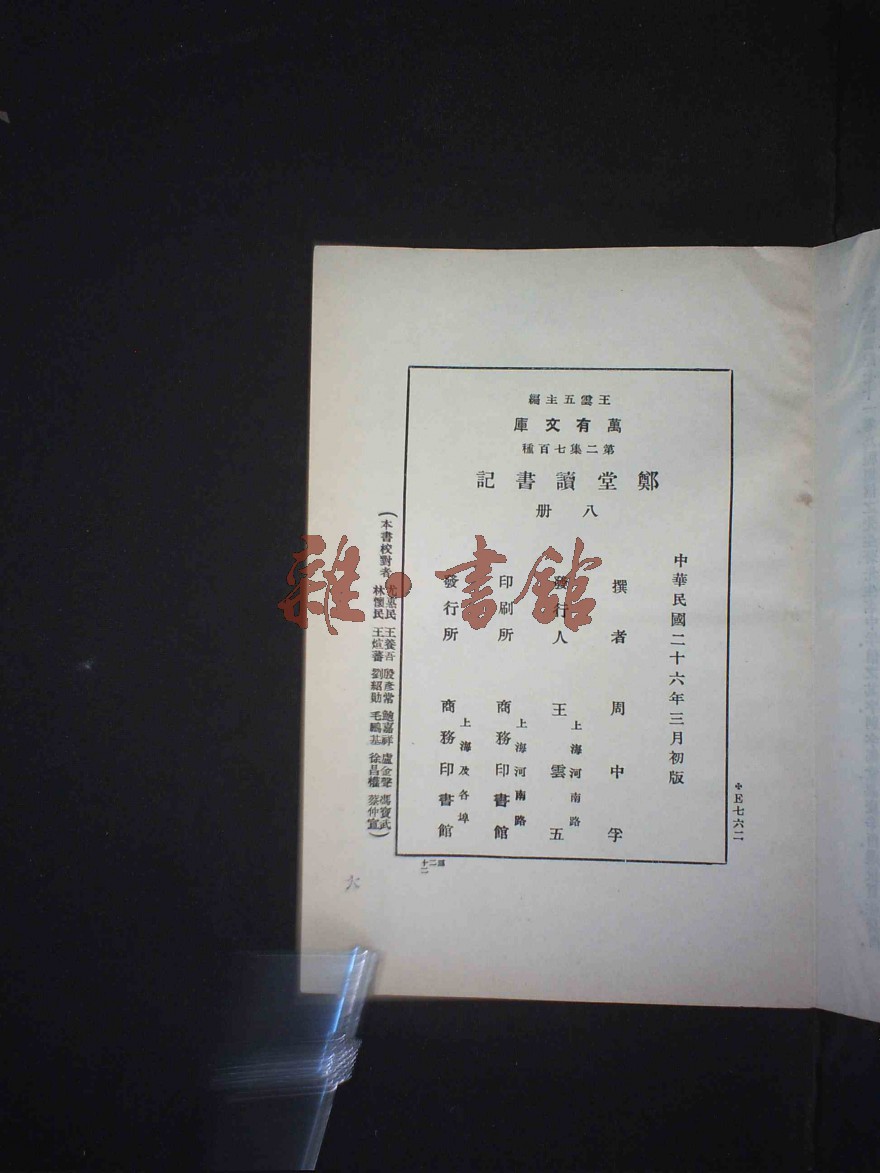 王雲五主編
萬有文庫
第二集七百種
鄭堂讀書記
八册
中華民國二十六年三月初版
撰者 周中孚
發行人 王雲五
上海河南路
印刷所 商務印書館
上海河南路
發行所 商務印書館
上海及各埠
(本書校對者
王養吾 殷彥常 鮑嘉祥 盧金聲 馮寶武
林懷民 王煊蕃 劉紹勛 毛鵬基 徐昌權 蔡仲宣)
✣E七六二
雜·書館